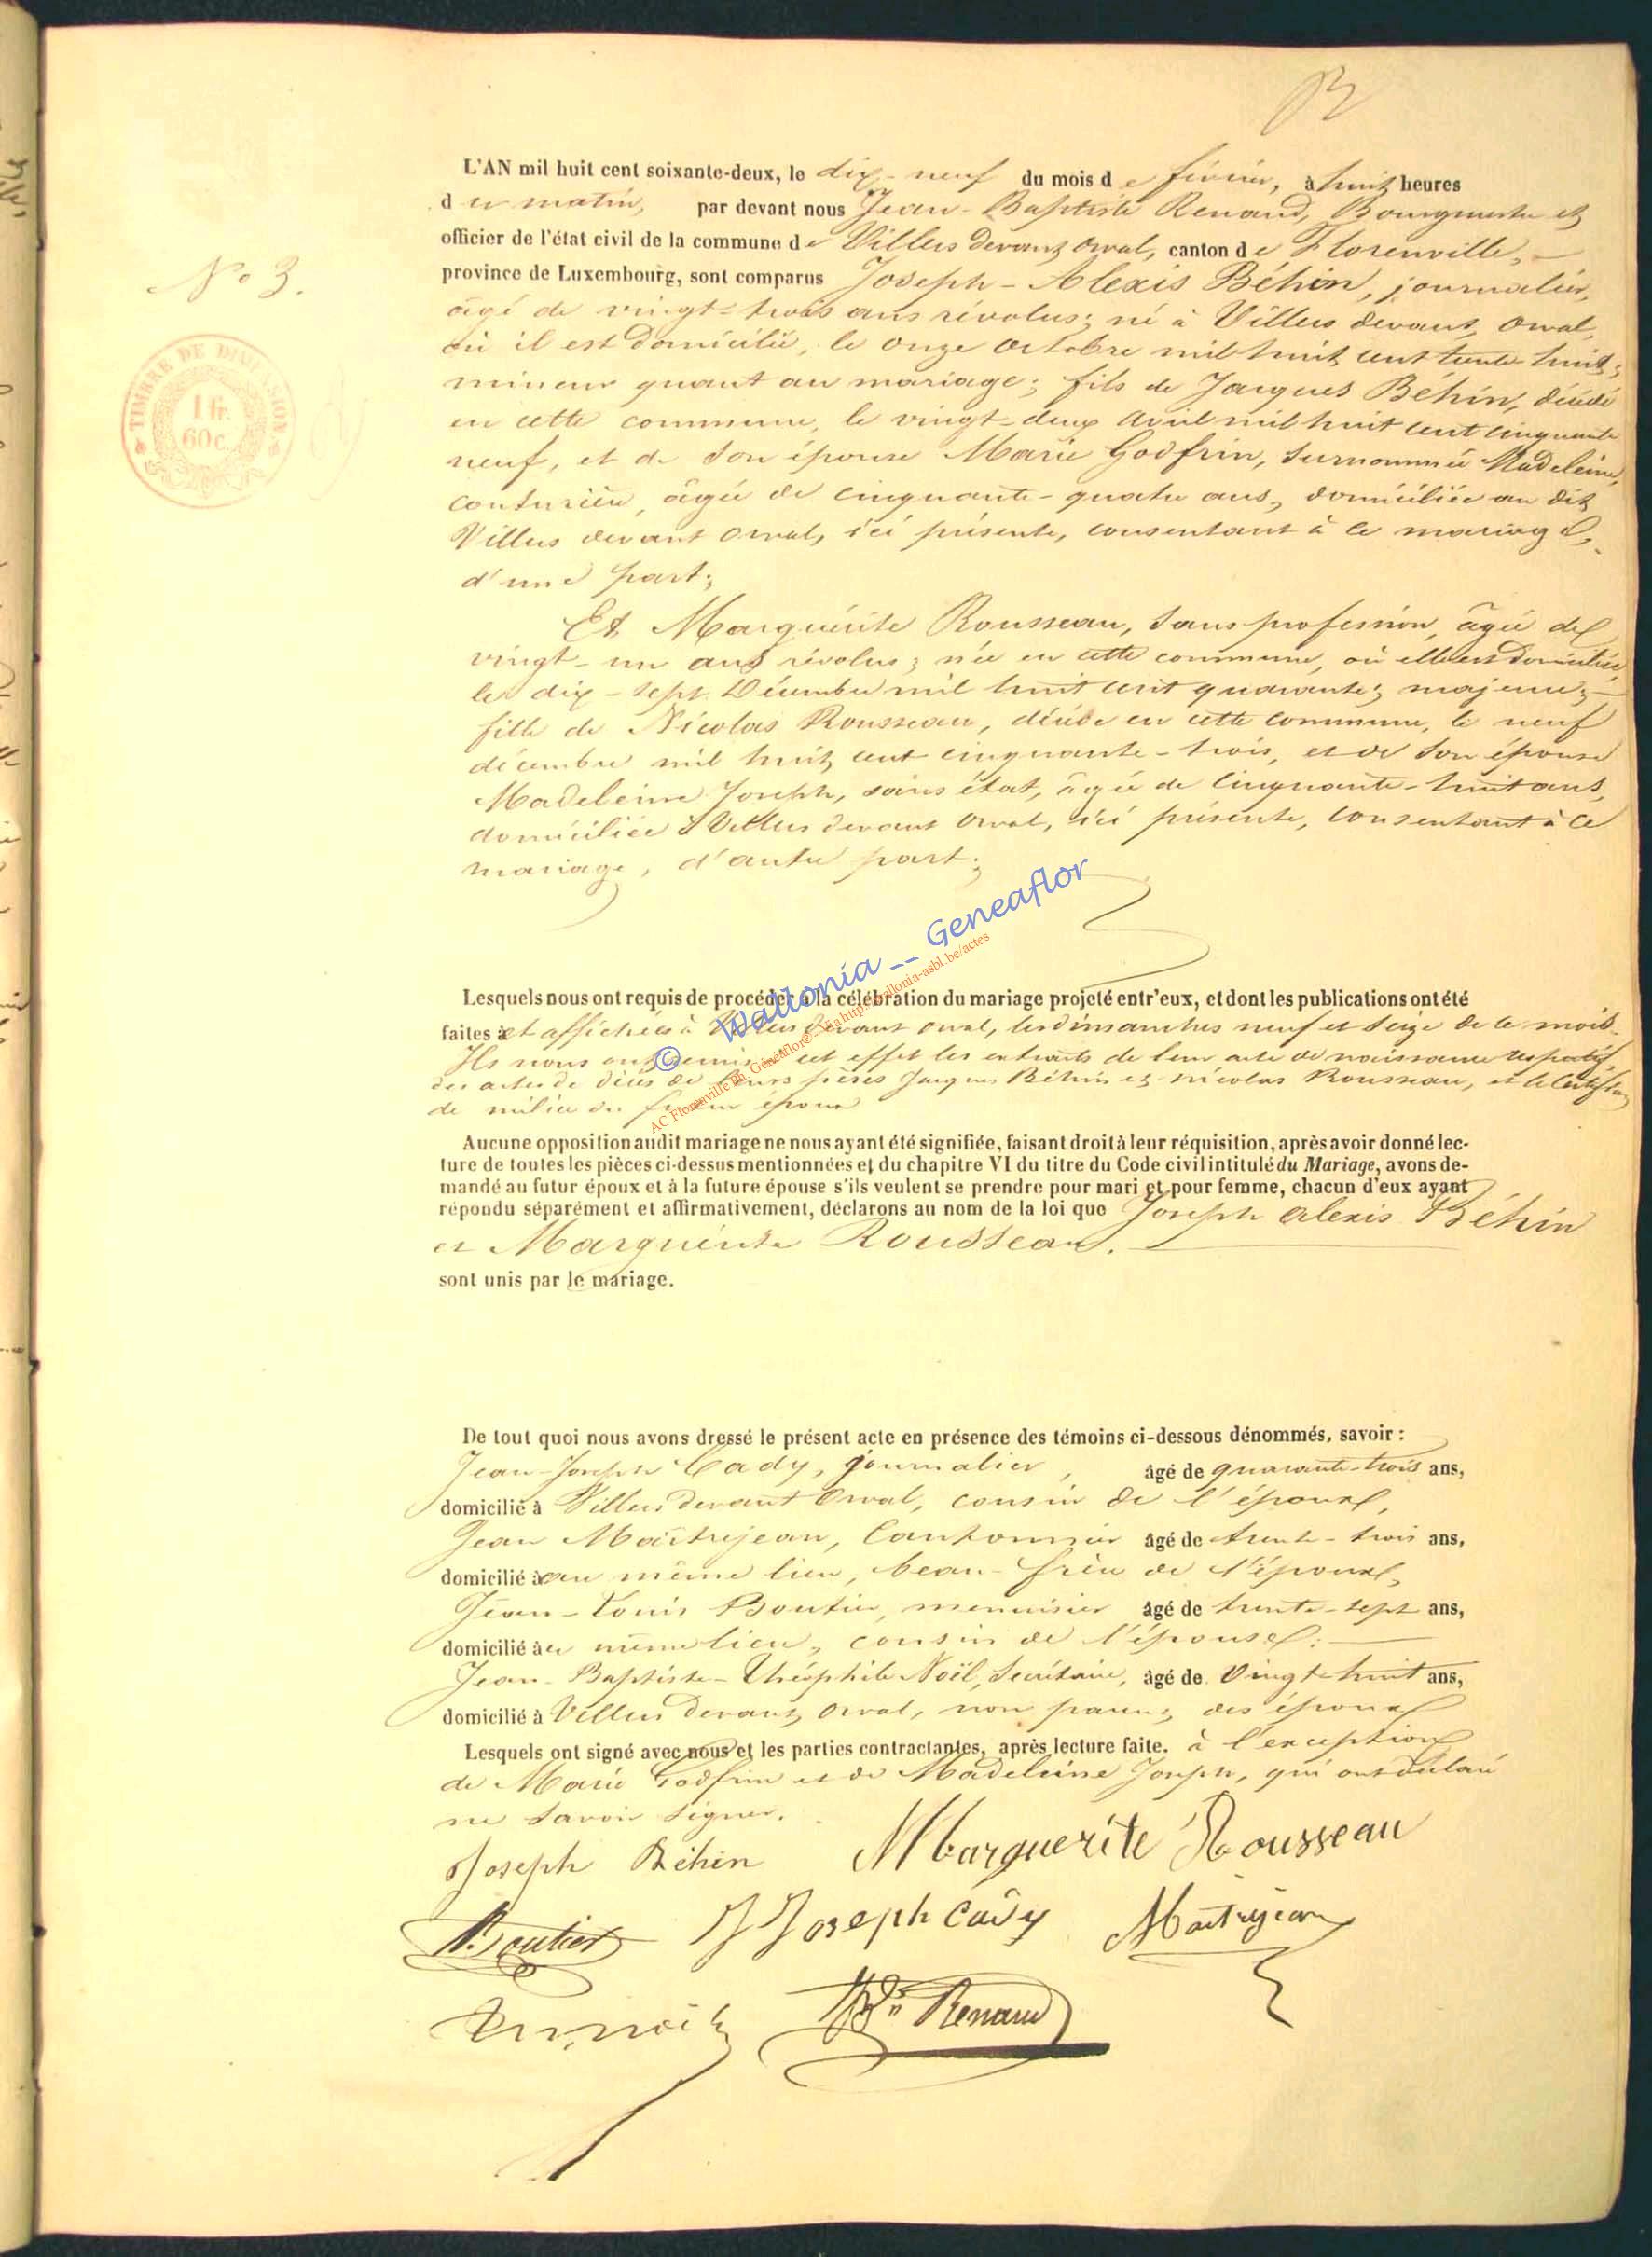 L'AN mil huit cent soixante-deux, le dix-neuf du mois de février, à huit heures
du matin, par devant nous Jean-Baptiste Renaud, Bourgmestre et
officier de l'état civil de la commune de Villers devant Orval, canton de Florenville,
province de Luxembourg, sont comparus Joseph-Alexis Béhin, journalier,
No 3.
âgé de vingt-trois ans révolus; né à Villers devant Orval,
où il est domicilié, le onze octobre mil huit cent trente huit;
TIMBRE DE DIMENSION
1 fr.
60 c.
mineur quant au mariage; fils de Jacques Béhin, décédé
en cette commune, le vingt-deux avril mil huit cent cinquante
neuf, et de son épouse Marie Godfrin, surnommée Madeleine,
couturière, âgée de cinquante-quatre ans, domiciliée au dit
Villers devant Orval, ici présente, consentant à ce mariage,
d'une part;
Et Marguérite Rousseau, sans profession, âgée de
vingt-un ans révolus; née en cette commune, où elle est domiciliée,
le dix-sept Décembre mil huit cent quarante; majeure;
fille de Nicolas Rousseau, décédé en cette commune, le neuf
décembre mil huit cent cinquante-trois, et de son épouse
Madeleine Joseph, sans état, âgée de cinquante-huit ans,
domiciliée à Villers devant Orval, ici présente, consentant à ce
mariage, d'autre part;
© Wallonia -- Geneaflor
AC Florenville in Généaflor® via http://wallonia-asbl.be/actes
Lesquels nous ont requis de procéder à la célébration du mariage projeté entr'eux, et dont les publications ont été
faites et affichées à Villers devant Orval, les dimanches neuf et seize de ce mois.
Ils nous ont remis à cet effet les extraits de leur acte de naissance respectif,
des actes de décès de leurs pères Jacques Béhin et Nicolas Rousseau, et le certificat
de milice du futur époux
Aucune opposition audit mariage ne nous ayant été signifiée, faisant droit à leur réquisition, après avoir donné lec-
ture de toutes les pièces ci-dessus mentionnées et du chapitre VI du titre du Code civil intitulé du Mariage, avons de-
mandé au futur époux et à la future épouse s'ils veulent se prendre pour mari et pour femme, chacun d'eux ayant
répondu séparément et affirmativement, déclarons au nom de la loi que Joseph Alexis Béhin
et Marguérite Rousseau.
sont unis par le mariage.
De tout quoi nous avons dressé le présent acte en présence des témoins ci-dessous dénommés, savoir :
Jean-Joseph Cady, journalier, âgé de quarante-trois ans,
domicilié à Villers devant Orval, cousin de l'épouse,
Jean Maîtrejean, Cantonnier âgé de trente-trois ans,
domicilié au même lieu, beau-frère de l'épouse,
Jean-Louis Boutier, menuisier âgé de trente-sept ans,
domicilié au même lieu, cousin de l'épouse;
Jean-Baptiste-Théophile Noël, Secrétaire, âgé de vingt-huit ans,
domicilié à Villers devant Orval, non parent des époux
Lesquels ont signé avec nous et les parties contractantes, après lecture faite. à l'exception
de Marie Godfrin et de Madeleine Joseph, qui ont déclaré
ne savoir signer.
Joseph Béhin Marguerite Rousseau
Boutier J Joseph Cady Maitrejean
Renaud